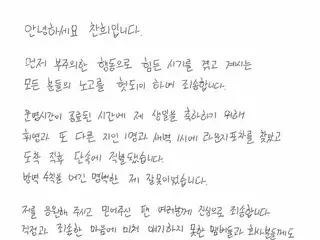 안녕하세요 찬희입니다.
먼저 부주의한 행동으로 힘든 시기를 겪고 계시는
모든 분들의 노고를 헛되이 하여 죄송합니다.
운영시간이 종료된 시간에 제 생일을 축하하기 위해
휘영과 또 다른 지인 1명과 새벽 1시에 라운지포차를 찾았고
도착 직후 단속에 적발됐습니다.
방역 수칙을 어긴 명백한 제 잘못이었습니다.
저를 응원해 주시고 믿어주신 팬 여러분께 진심으로 죄송합니다.
걱정과 죄송한 마음에 미처 얘기하지 못한 멤버들과 회사분들께도